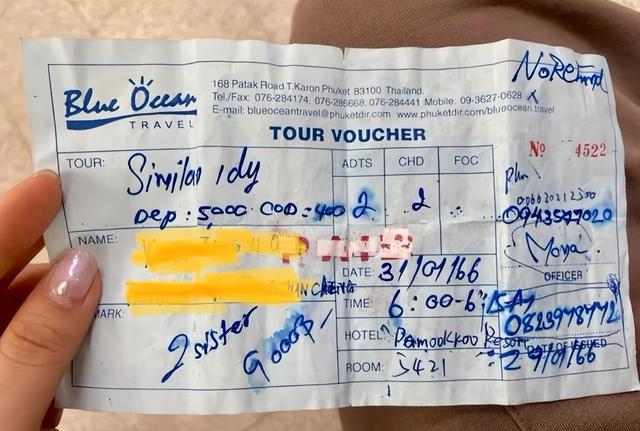 NoRefund
Blue Ocean
TRAVEL
168 Patak Road T.Karon Phuket 83100 Thailand.
Tel./Fax: 076-284174, 076-286668, 076-284441 Mobile: 09-3627-0628
E-mail: blueoceantravel@phuketdir.com www.phuketdir.com/blueocean.travel
TOUR VOUCHER
No 4522
TOUR: Similan 1dy
Dep: 5,000 COD = 400
ADTS CHD FOC
2 2
0943547020
OFFICER
NAME:
PAID
DATE: 31/01/66
TIME: 6:00-6:15
0823978772
HOTEL: Pamookkoo Resort
DATE OF ISSUED
29/01/66
ROOM: 5421
MARK:
2 sister
9000